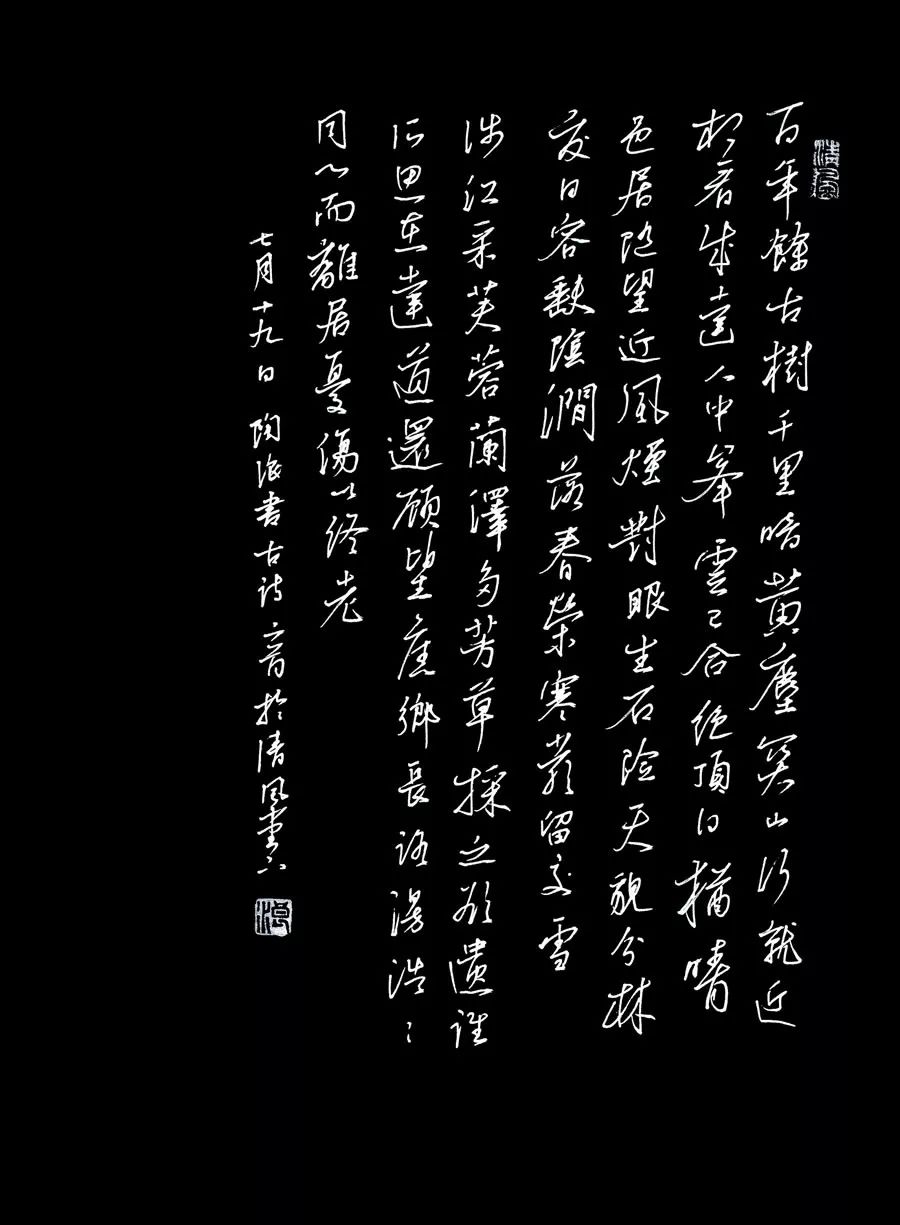 清風
百年餘古樹千里暗黃塵關山行就近
相看成遠人中峯雲已合絕頂日猶晴
邑居隨望近風煙對眼生石險天貌分林
交日容缺陰澗落春榮寒巖留夏雪
涉江采芙蓉蘭澤多芳草採之欲遺誰
所思在遠道還顧望舊鄉長路漫浩〻
同心而離居憂傷以終老
七月十九日陶浪書古詩於清風堂下